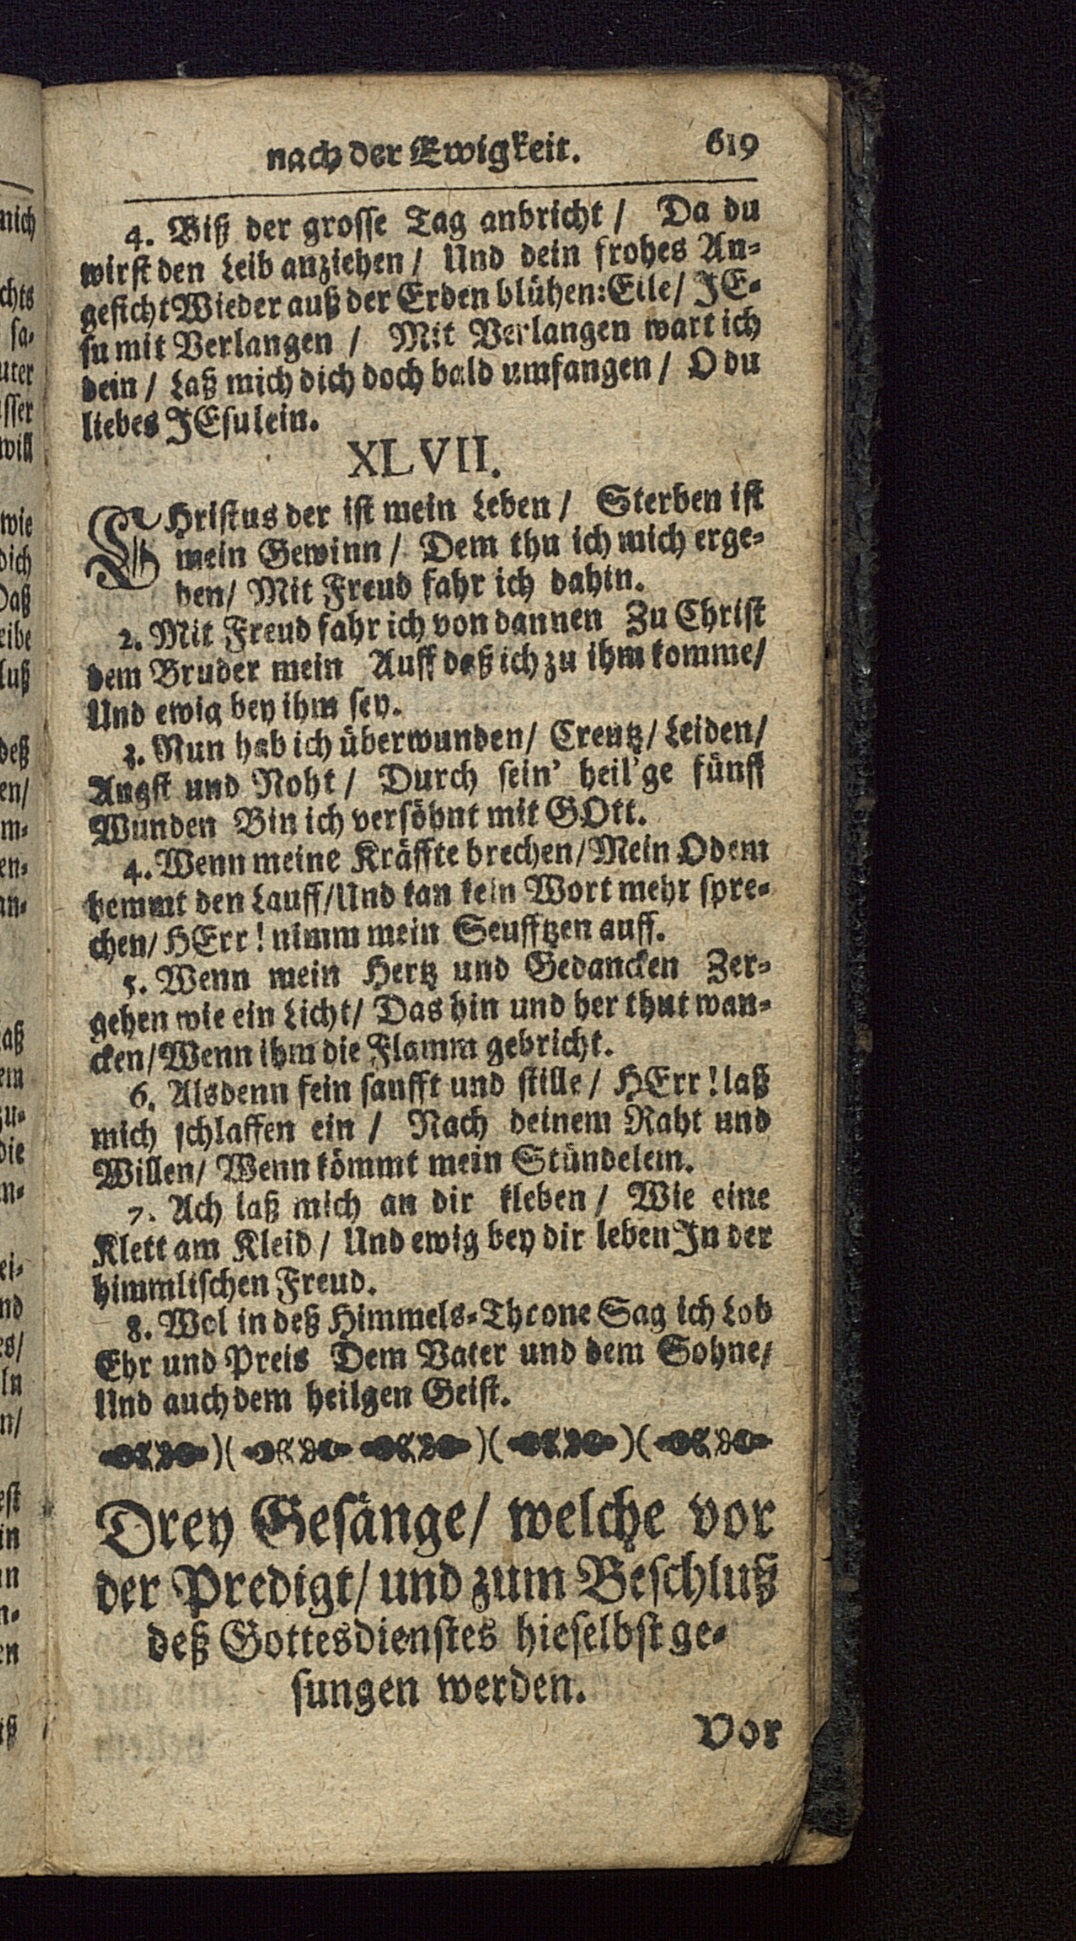 nach der Ewigkeit. 619
4. Biß der grosse Tag anbricht / Da du
wirst den Leib anziehen / Und dein frohes An-
gesicht Wieder auß der Erden blühen: Eile / JE-
su mit Verlangen / Mit Verlangen wart ich
dein / Laß mich dich doch bald umfangen / O du
liebes JEsulein.
XLVII.
CHristus der ist mein Leben / Sterben ist
mein Gewinn / Dem thu ich mich erge-
ben / Mit Freud fahr ich dahin.
2. Mit Freud fahr ich von dannen Zu Christ
dem Bruder mein Auff daß ich zu ihm komme /
Und ewig bey ihm sey.
3. Nun hab ich überwunden / Creutz / Leiden /
Angst und Noht / Durch sein' heil'ge fünff
Wunden Bin ich versöhnt mit GOtt.
4. Wenn meine Kräffte brechen / Mein Odem
hemmt den Lauff / Und kan kein Wort mehr spre-
chen / HErr! nimm mein Seufftzen auff.
5. Wenn mein Hertz und Gedancken Zer-
gehen wie ein Licht / Das hin und her thut wan-
cken / Wenn ihm die Flamm gebricht.
6. Alsdenn fein sanfft und stille / HErr! laß
mich schlaffen ein / Nach deinem Raht und
Willen / Wenn kömmt mein Stündelein.
7. Ach laß mich an dir kleben / Wie eine
Klett am Kleid / Und ewig bey dir leben In der
himmlischen Freud.
8. Wol in deß Himmels-Throne Sag ich Lob
Ehr und Preis Dem Vater und dem Sohne /
Und auch dem heilgen Geist.
Drey Gesänge / welche vor
der Predigt / und zum Beschluß
deß Gottesdienstes hieselbst ge-
sungen werden.
Vor